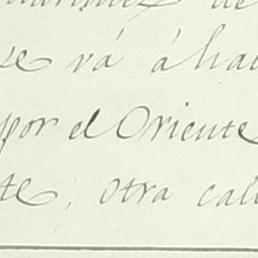 de
se vá á hac
por el Oriente
te, otra cal